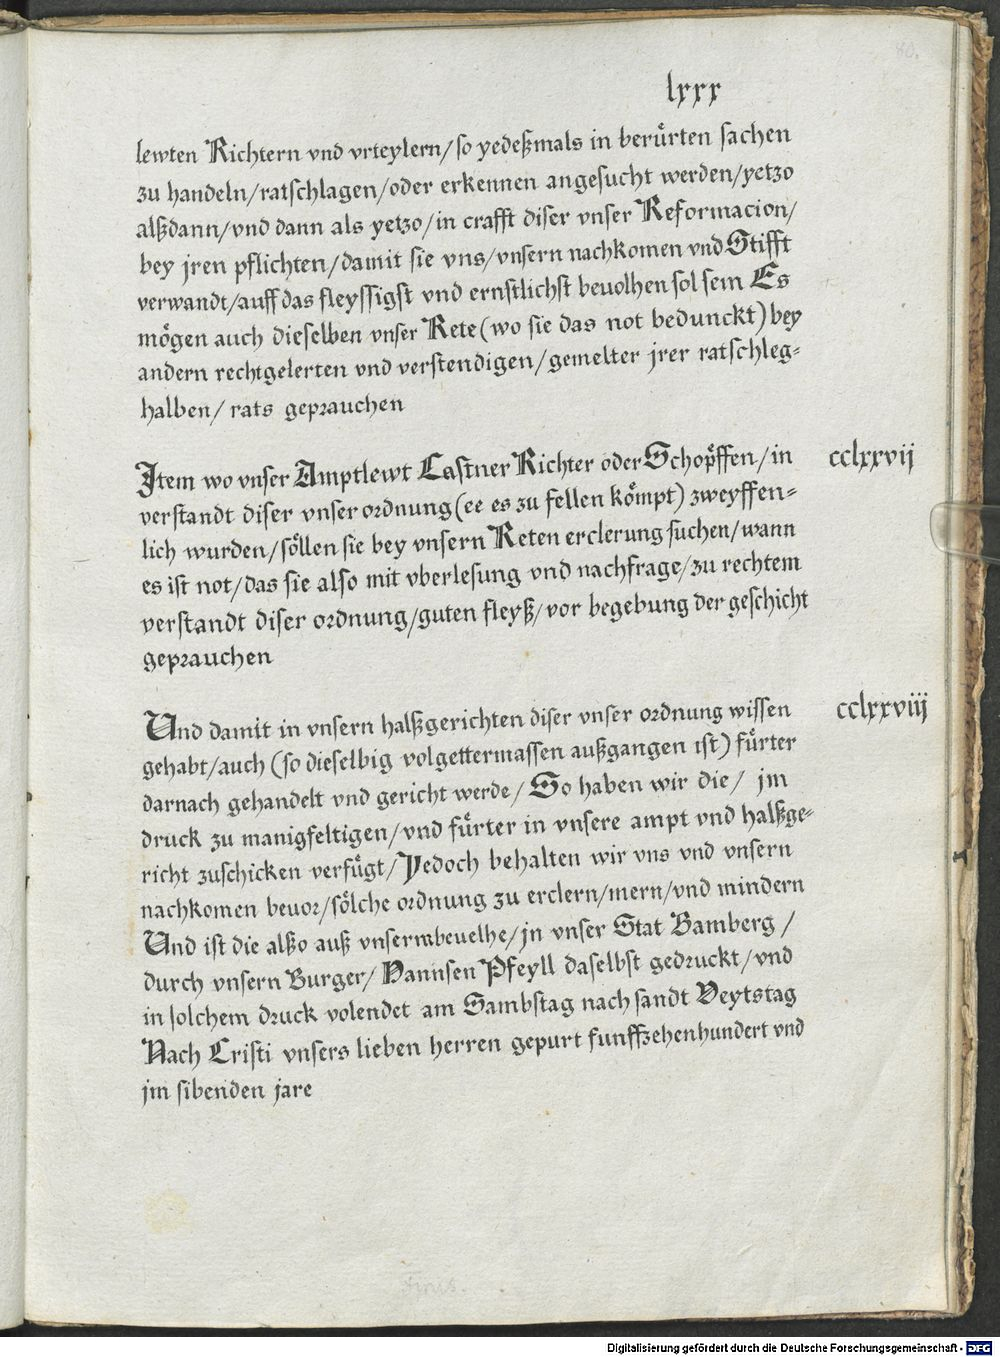 80.
lxxx
lewten Richtern vnd vrteylern/so yedeßmals in berůrten sachen
zu handeln/ratschlagen/oder erkennen angesucht werden/yetzo
alßdann/vnd dann als yetzo/in crafft diser vnser Reformacion/
bey jren pflichten/damit sie vns/vnsern nachkomen vnd Stifft
verwandt/auff das fleyssigst vnd ernstlichst beuolhen sol sein Es
mögen auch dieselben vnser Rete (wo sie das not bedunckt) bey
andern rechtgelerten vnd verstendigen/gemelter jrer ratschleg-
halben/ rats geprauchen
Item wo vnser Amptlewt Castner Richter oder Schöpffen/in
cclxxvij
verstandt diser vnser ordnung (ee es zu fellen kömpt) zweyffen-
lich wurden/söllen sie bey vnsern Reten erclerung suchen/wann
es ist not/das sie also mit vberlesung vnd nachfrage/zu rechtem
verstandt diser ordnung/guten fleyß/vor begebung der geschicht
geprauchen
Vnd damit in vnsern halßgerichten diser vnser ordnung wissen
cclxxviij
gehabt/auch (so dieselbig volgettermassen außgangen ist) fürter
darnach gehandelt vnd gericht werde/ So haben wir die/ jm
druck zu manigfeltigen/vnd fürter in vnsere ampt vnd halßge-
richt zuschicken verfügt/Yedoch behalten wir vns vnd vnsern
nachkomen beuor/sölche ordnung zu erclern/mern/vnd mindern
Vnd ist die alßo auß vnsermbeuelhe/jn vnser Stat Bamberg /
durch vnsern Burger/ Hannsen Pfeyll daselbst gedruckt/vnd
in solchem druck volendet am Sambstag nach sandt Veytstag
Nach Cristi vnsers lieben herren gepurt funffzehenhundert vnd
jm sibenden jare
Finis.
Digitalisierung gefördert durch die Deutsche Forschungsgemeinschaft - DFG